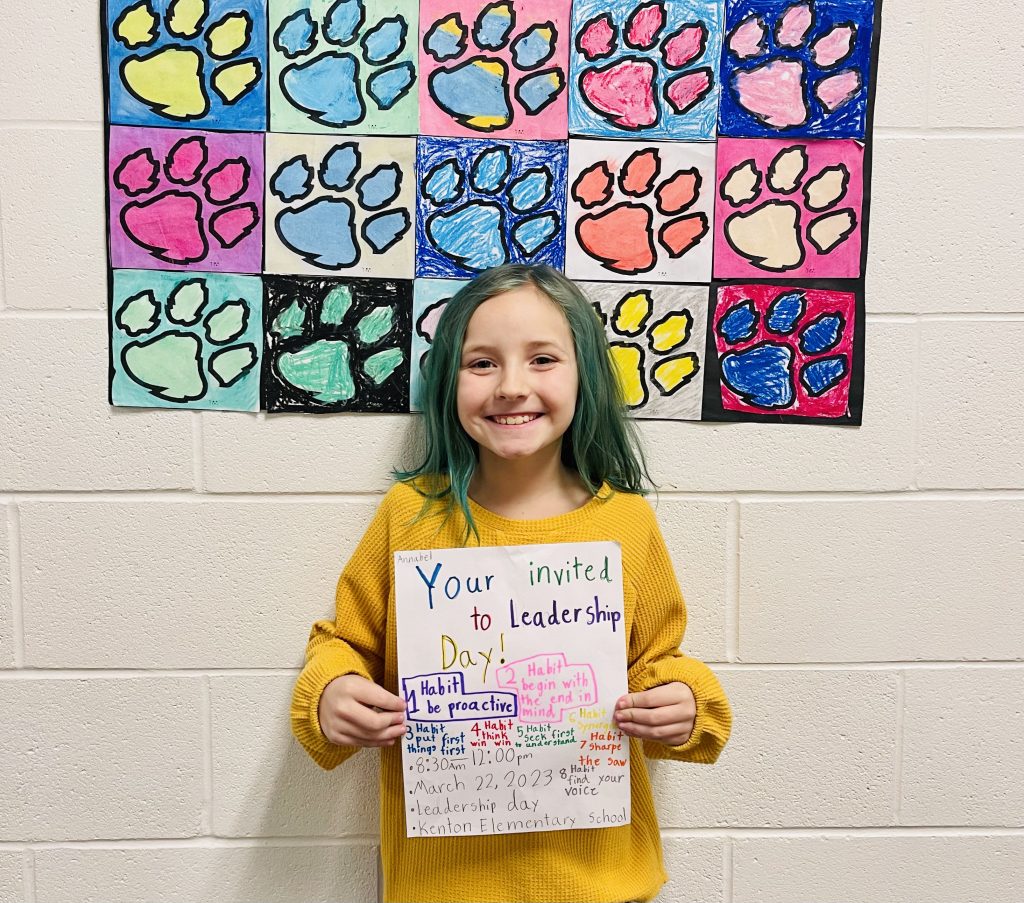 Annabel
Your invited
to Leadership
Day!
1 Habit
be proactive
2 Habit
begin with
the end in
mind
3 Habit
put first
things first
4 Habit
think
win win
5 Habit
seek first
to understand
6 Habit
7 Habit
sharpe
the saw
8 Habit
find your
voice
• 8:30 Am 12:00 pm
• March 22, 2023
• Leadership day
• Kenton Elementary School